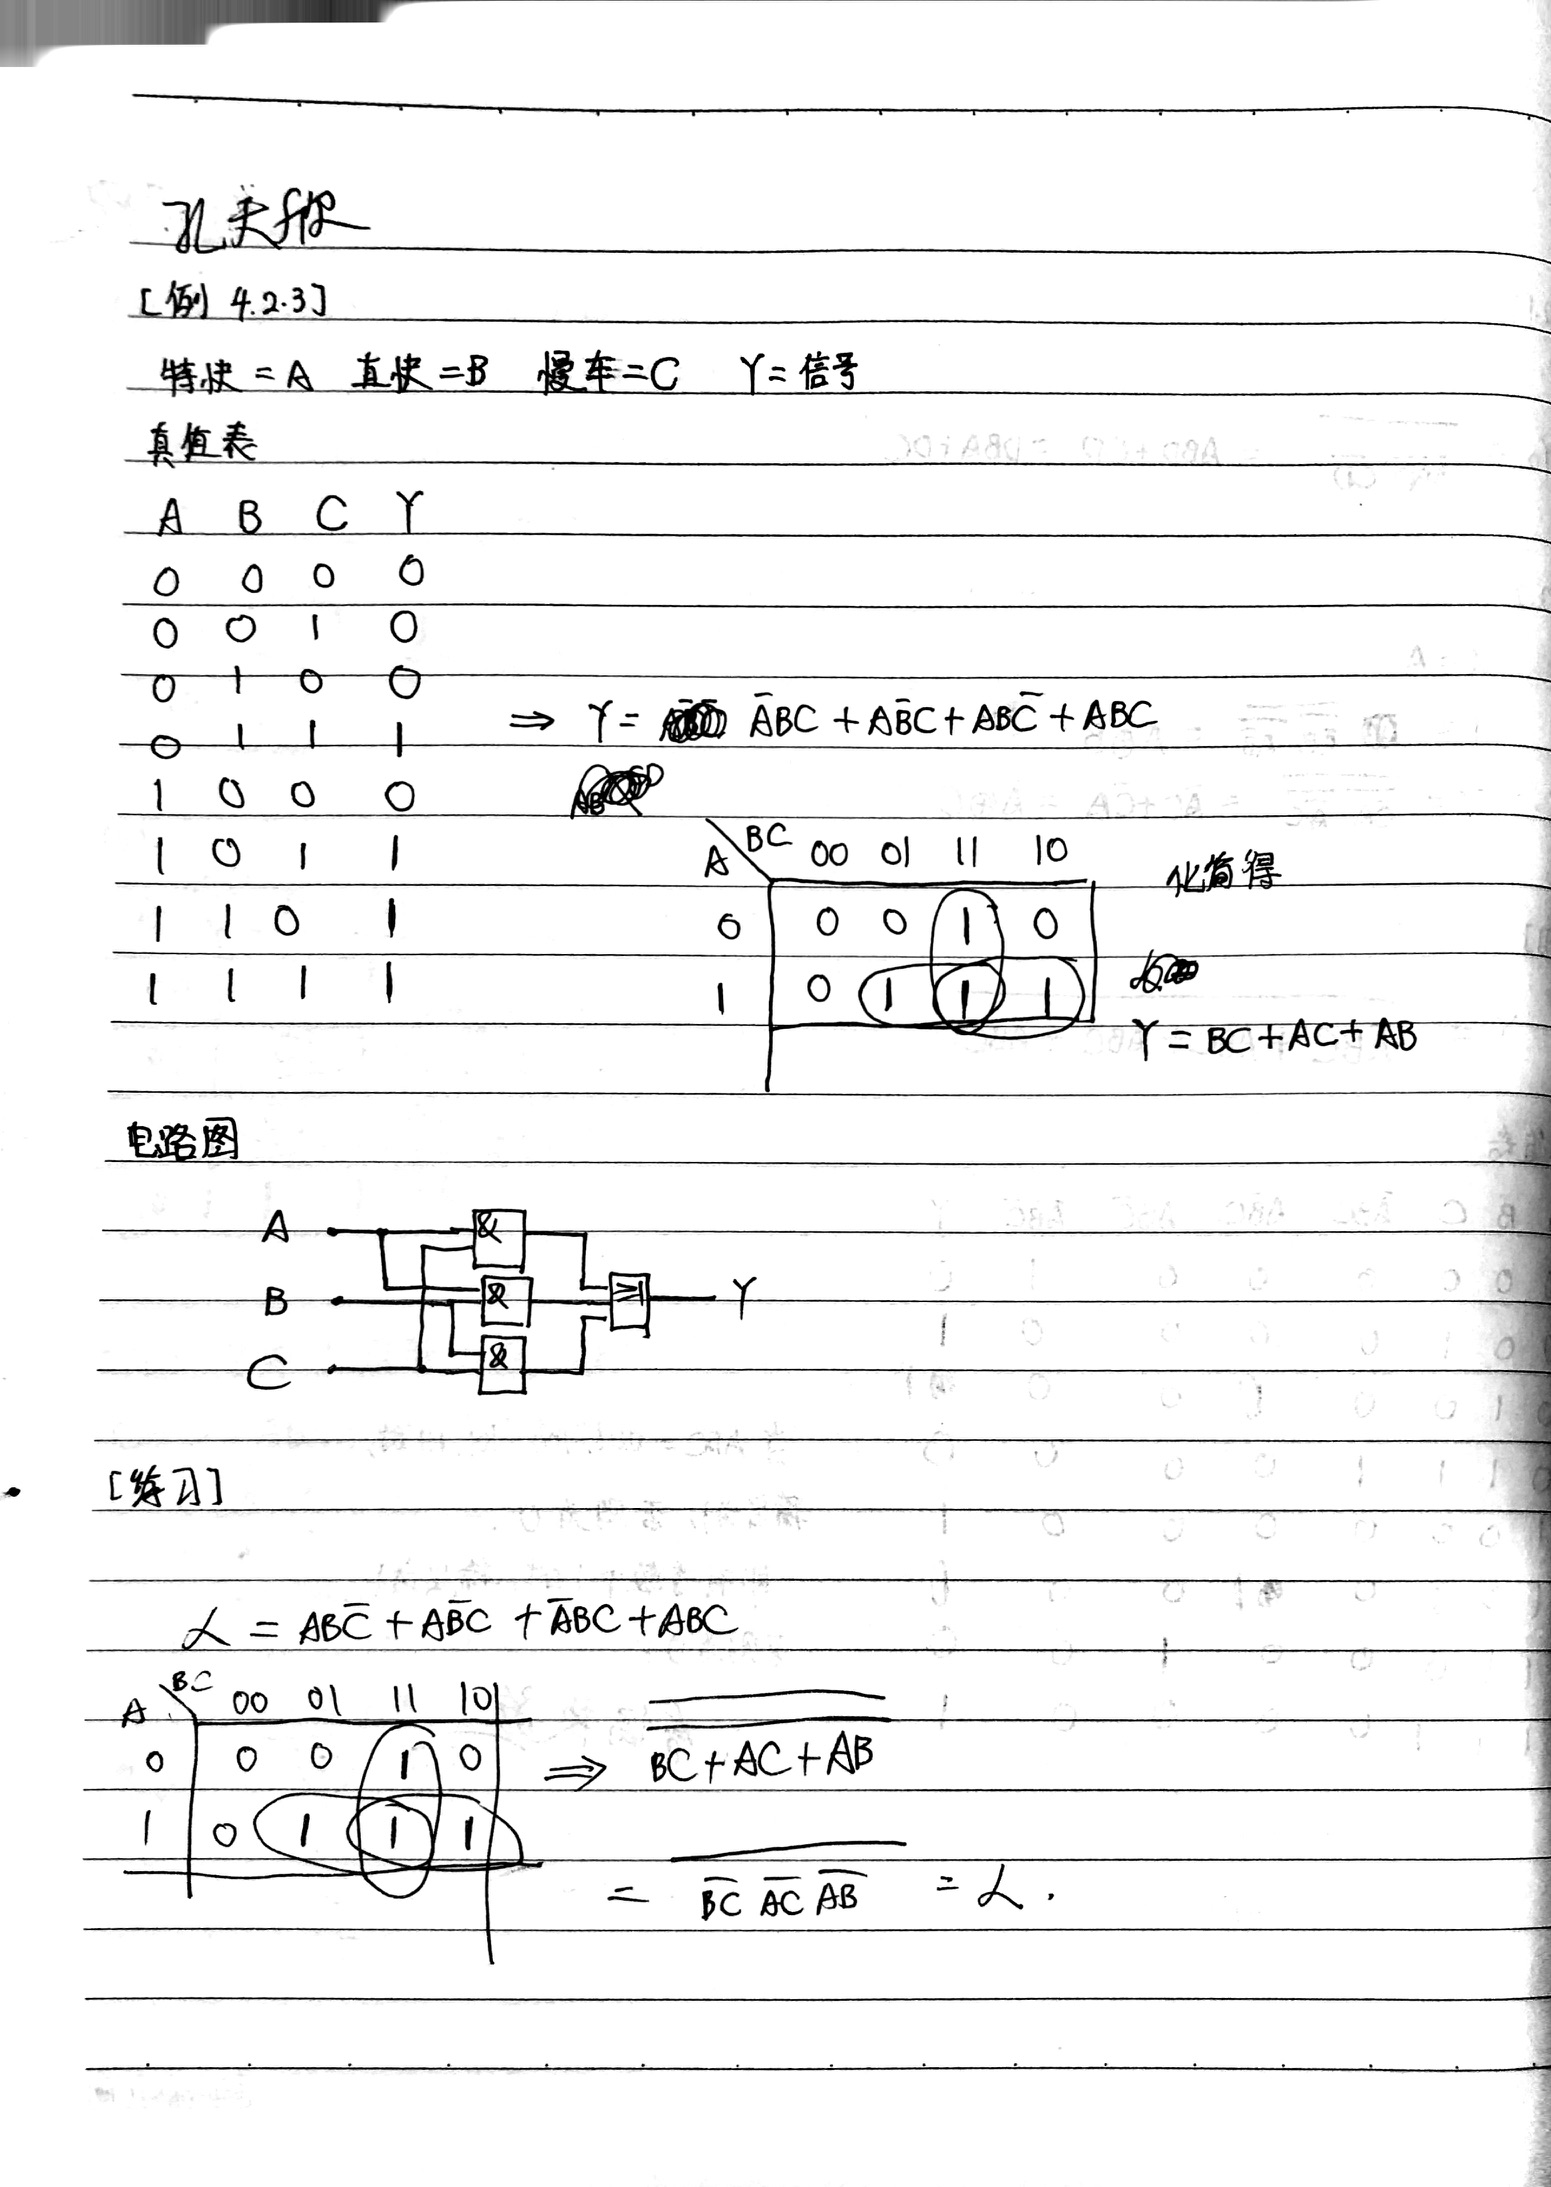 [例 4.2.3]
特快 = A 直快 = B 慢车 = C Y = 信号
真值表
A B C Y
0 0 0 0
0 0 1 0
0 1 0 0
0 1 1 1
1 0 0 0
1 0 1 1
1 1 0 1
1 1 1 1
⇒ Y = A̅BC + AB̅C + ABC̅ + ABC
A BC 00 01 11 10
0 0 0 1 0
1 0 1 1 1
化简得
Y = BC + AC + AB
电路图
A & 
B & ≥1 Y
C &
[练习]
L = ABC̅ + AB̅C + A̅BC + ABC
A BC 00 01 11 10
0 0 0 1 0
1 0 1 1 1
⇒ B̿C̿ ̿+̿ A̿C̿ ̿+̿ A̿B̿
= \overline{\overline{BC} \overline{AC} \overline{AB}} = L.